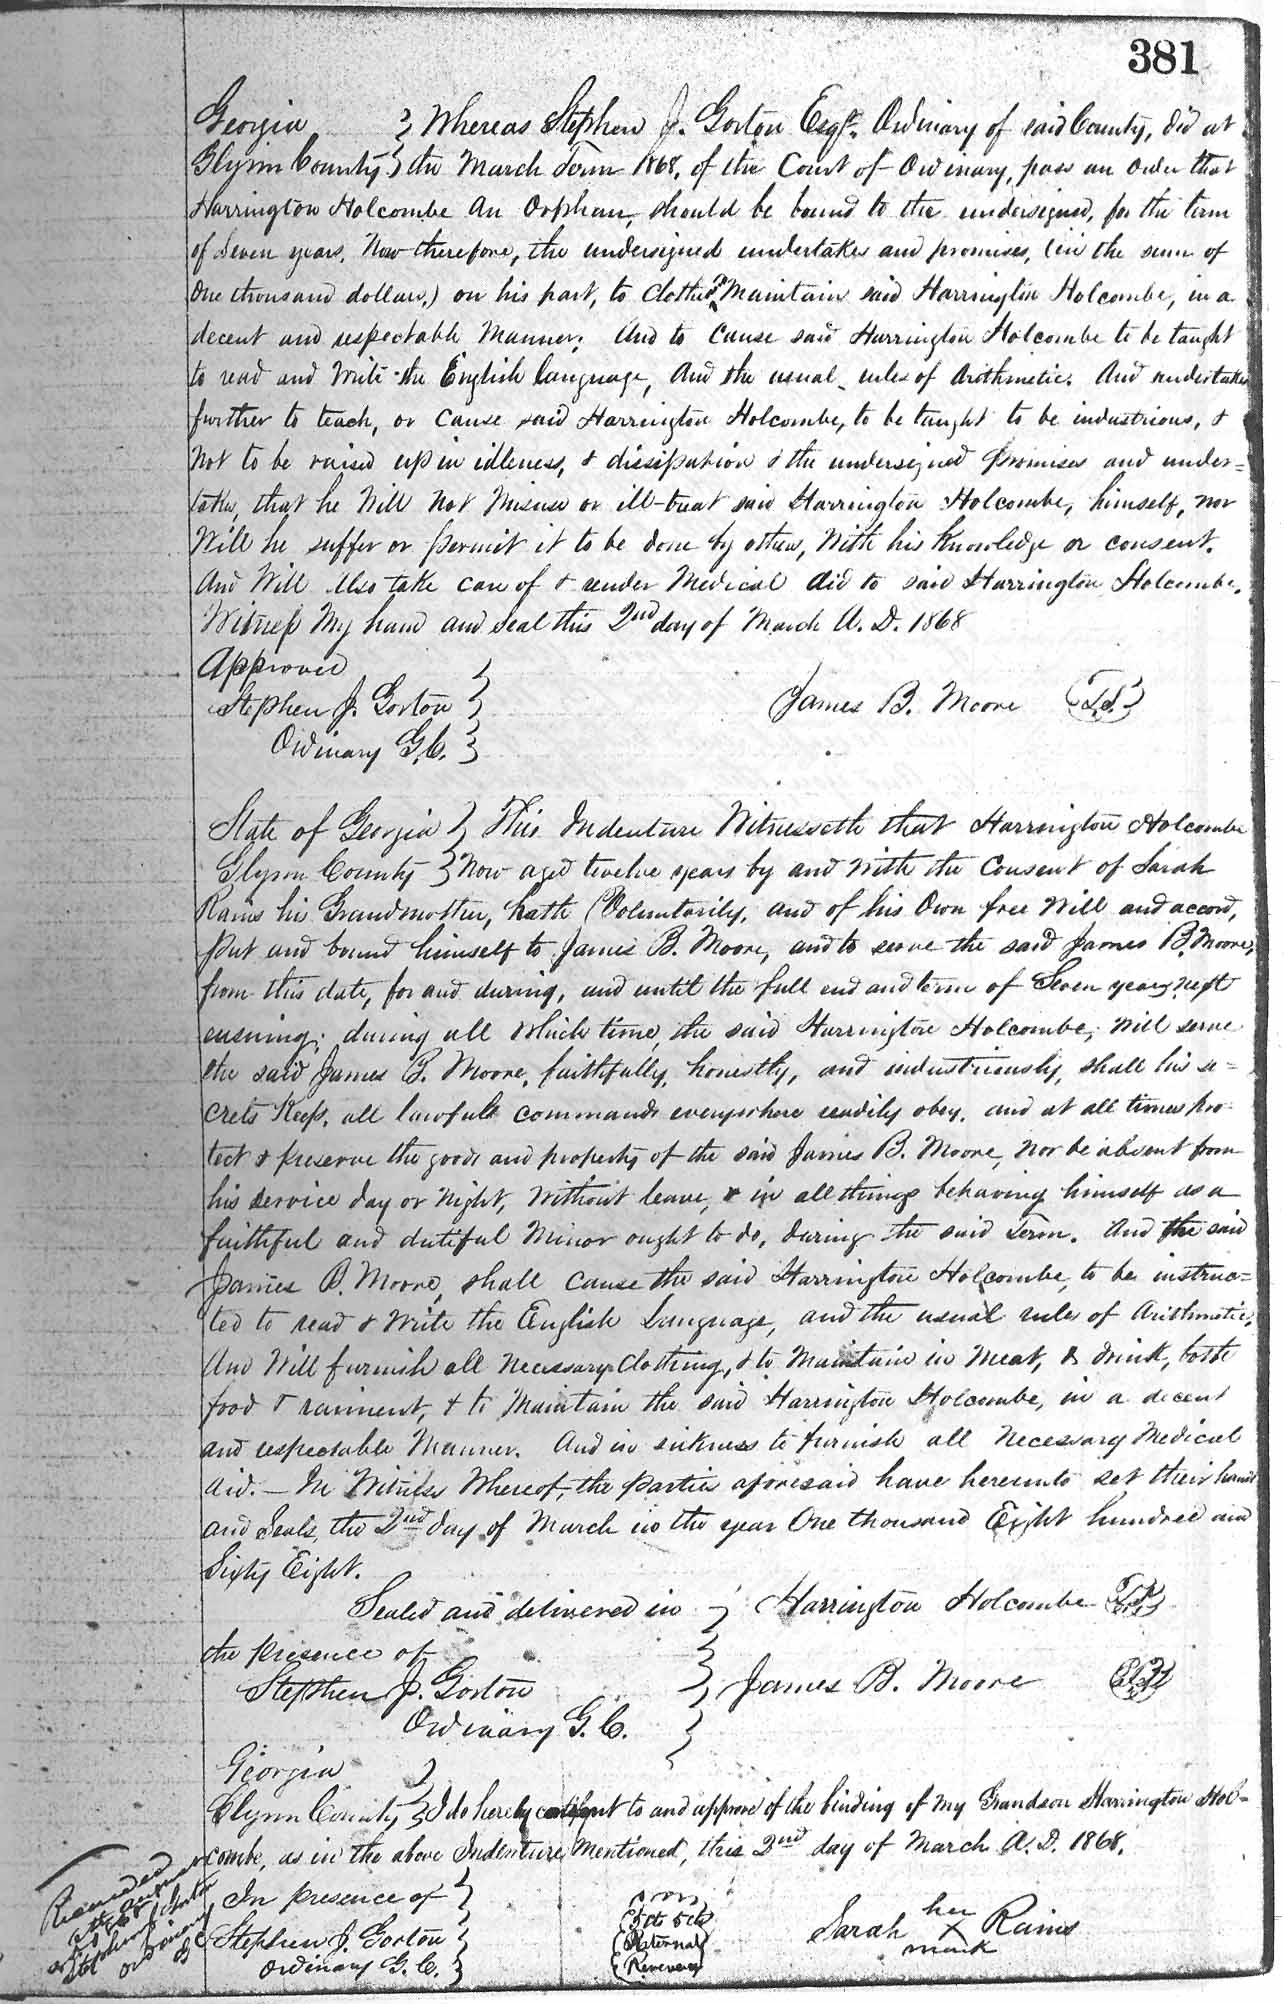 381
Georgia } Whereas Stephen J. Gorton Esqr. Ordinary of said County, did at
Glynn County } the March Term 1868, of the Court of Ordinary, pass an Order that
Harrington Holcombe an Orphan, should be bound to the undersigned, for the term
of Seven years. Now therefore, the undersigned undertakes and promises, (in the sum of
One thousand dollars,) on his part, to Clothe & Maintain said Harrington Holcombe, in a
decent and respectable Manner; And to Cause said Harrington Holcombe to be taught
to read and Write the English language, And the usual rules of Arithmetic. And undertakes
further to teach, or Cause said Harrington Holcombe, to be taught to be industrious, &
Not to be raised up in idleness, & dissipation & the undersigned promises and under=
takes, that he Will Not Misuse or ill-treat said Harrington Holcombe, himself, nor
Will he suffer or permit it to be done by others, With his Knowledge or consent.
And Will Also take care of & render Medical Aid to said Harrington Holcombe.
Witness My hand and seal this 2nd day of March A. D. 1868
Approved
Stephen J. Gorton } James B. Moore L.S.
Ordinary G.C.
State of Georgia } This Indenture Witnesseth that Harrington Holcombe
Glynn County } Now aged twelve years by and With the Consent of Sarah
Rains his Grandmother, hath Voluntarily, and of his Own free Will and accord,
put and bound himself to James B. Moore, and to serve the said James B. Moore,
from this date, for and during, and until the full end and term of Seven years next
ensuing; during all Which time, the said Harrington Holcombe, Will serve
the said James B. Moore, faithfully, honestly, and industriously, shall his se=
crets Keep, all lawfull commands everywhere readily obey, and at all times pro-
tect & preserve the goods and property of the said James B. Moore, Nor be absent from
his service day or Night, Without leave, & in all things behaving himself as a
faithful and dutiful Minor ought to do, during the said Term. And the said
James B. Moore, shall cause the said Harrington Holcombe, to be instruc=
ted to read & Write the English Language, and the usual rules of Arithmetic,
And Will furnish all Necessary Clothing, & to Maintain in Meat, & drink, both
food & raiment, & to Maintain the said Harrington Holcombe, in a decent
and respectable Manner. And in sickness to furnish all Necessary Medical
Aid. - In Witness Whereof, the parties aforesaid have hereunto set their hands
and Seals, the 2nd day of March in the year One thousand Eight hundred and
Sixty Eight.
Sealed and delivered in } Harrington Holcombe L.S.
the presence of
Stephen J. Gorton } James B. Moore
Ordinary G.C.
Georgia }
Glynn County } I do hereby consent to and approve of the binding of My Grandson Harrington Hol=
combe, as in the above Indenture Mentioned, this 2nd day of March A. D. 1868.
In presence of
Stephen J. Gorton
Ordinary G.C.
5cts 5cts
Internal
Revenue
Sarah her X mark Rains
Recorded
Stephen J. Gorton
Ordinary